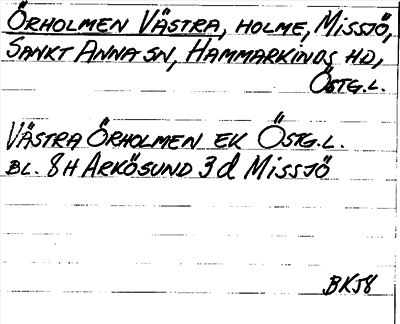 ÖRHOLMEN VÄSTRA, HOLME, MISSJÖ,
SANKT ANNA SN, HAMMARKINDS HD,
ÖSTG.L.
VÄSTRA ÖRHOLMEN EK ÖSTG.L.
BL. 8H ARKÖSUND 3d MISSJÖ
BK58